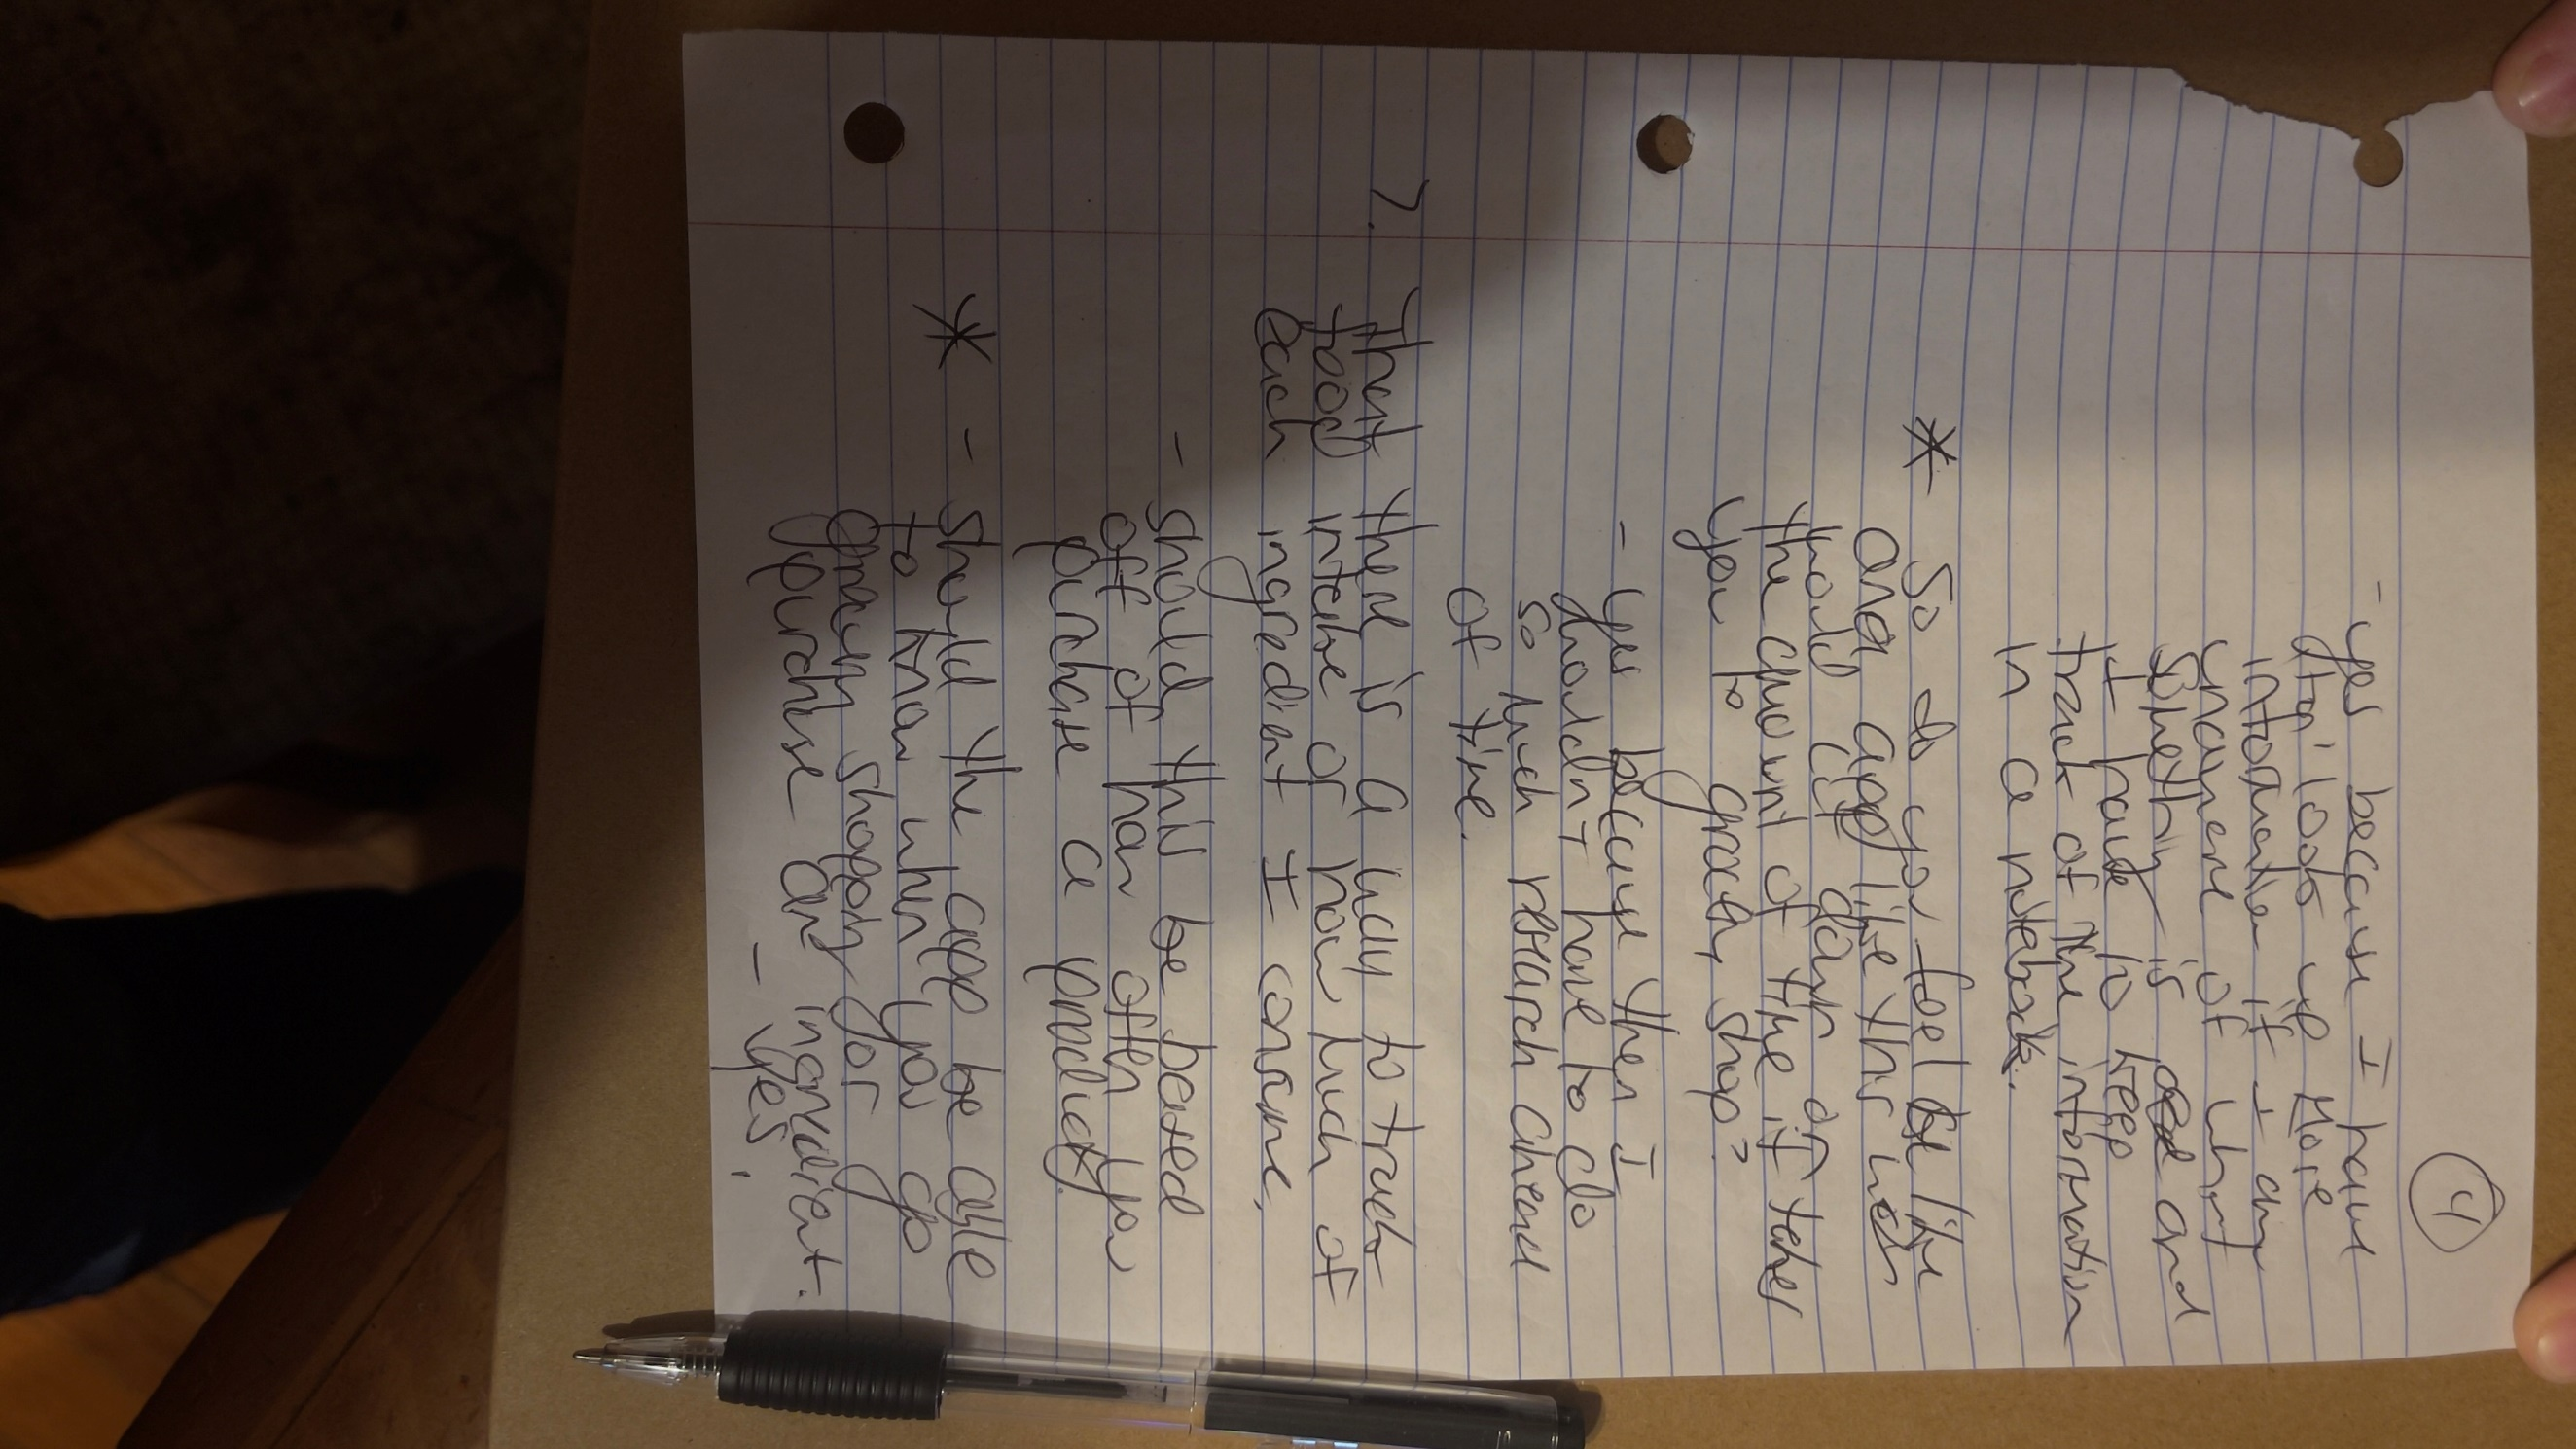 4
- yes because I have
stop look up more
information if I am
unaware of what
something is and
I have to keep
track of the information
in a notebook.
* So do you feel like
an app like this
would cut down on
the amount of time it takes
you to grocery shop?
- yes because then I
wouldn't have to do
so much research ahead
of time.
7. That there is a way to track
food intake or how much of
each ingredient I consume.
- should this be based
off of how often you
purchase a product?
* - should the app be able
to know when you go
grocery shopping for
purchase an ingredient.
- yes.